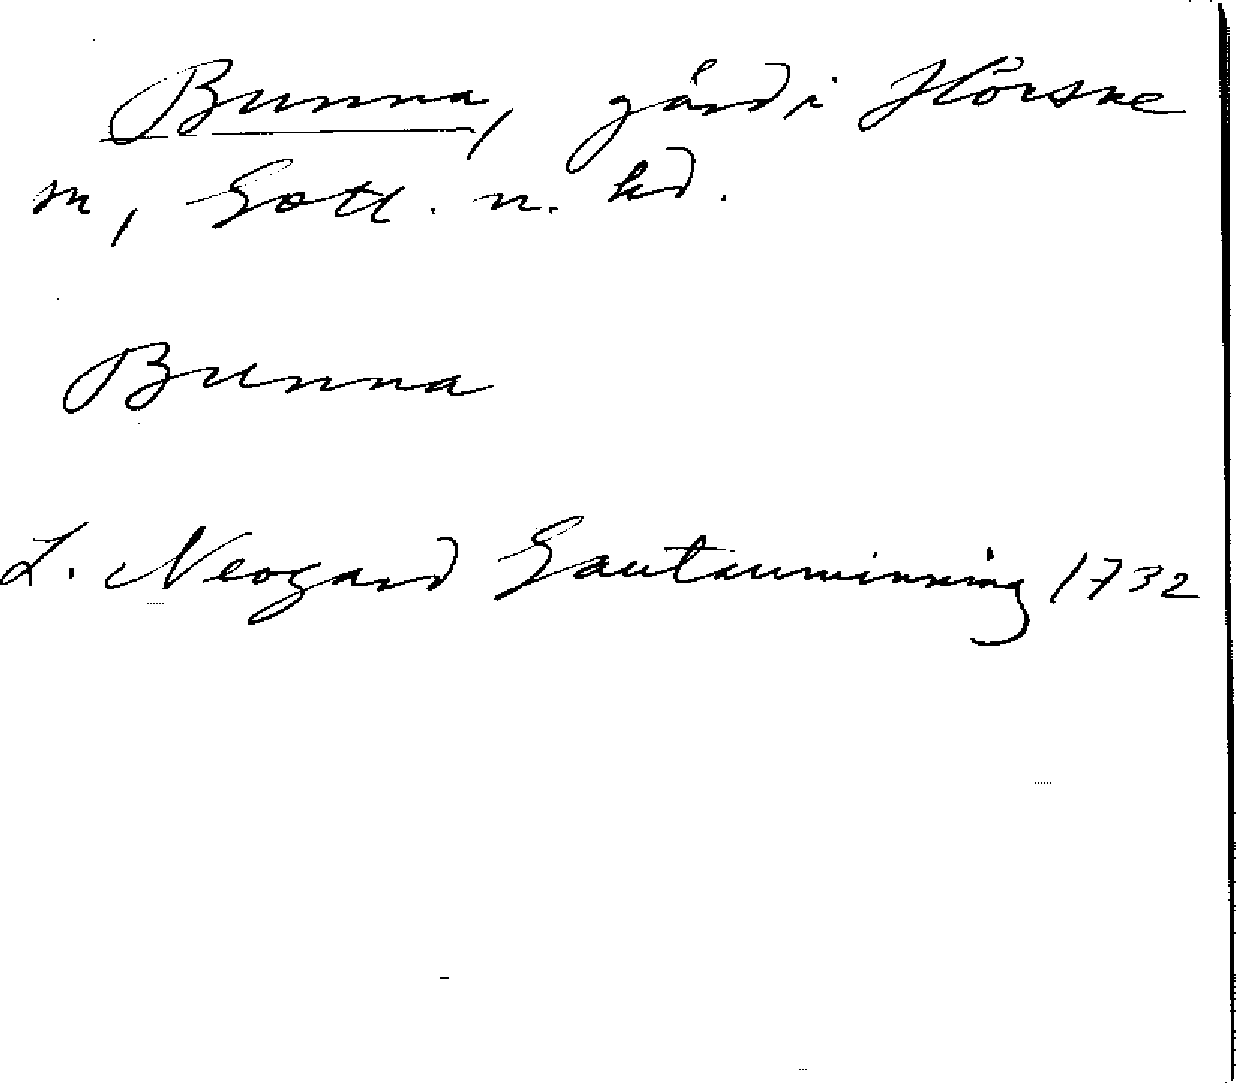 Bunna, gård i Hörsne
sn, Gotl. n. hd.
Bunna
L. Neogard Gautauminning 1732